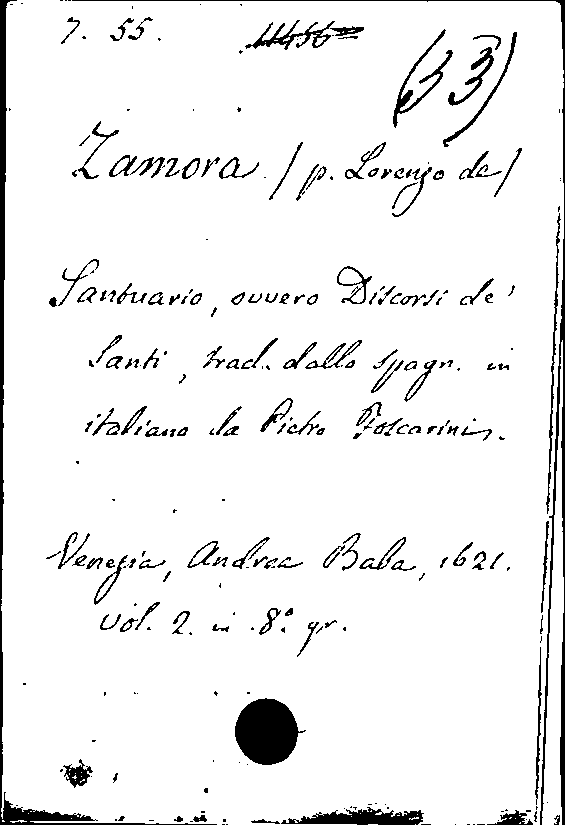 7. 55. 11456
(33)
Zamora / p. Lorenzo de /
Santuario, ovvero Discorsi de'
Santi, trad. dallo spagn. in
italiano da Pietro Foscarini.
Venezia, Andrea Baba, 1621.
vol. 2. in 8.° gr.